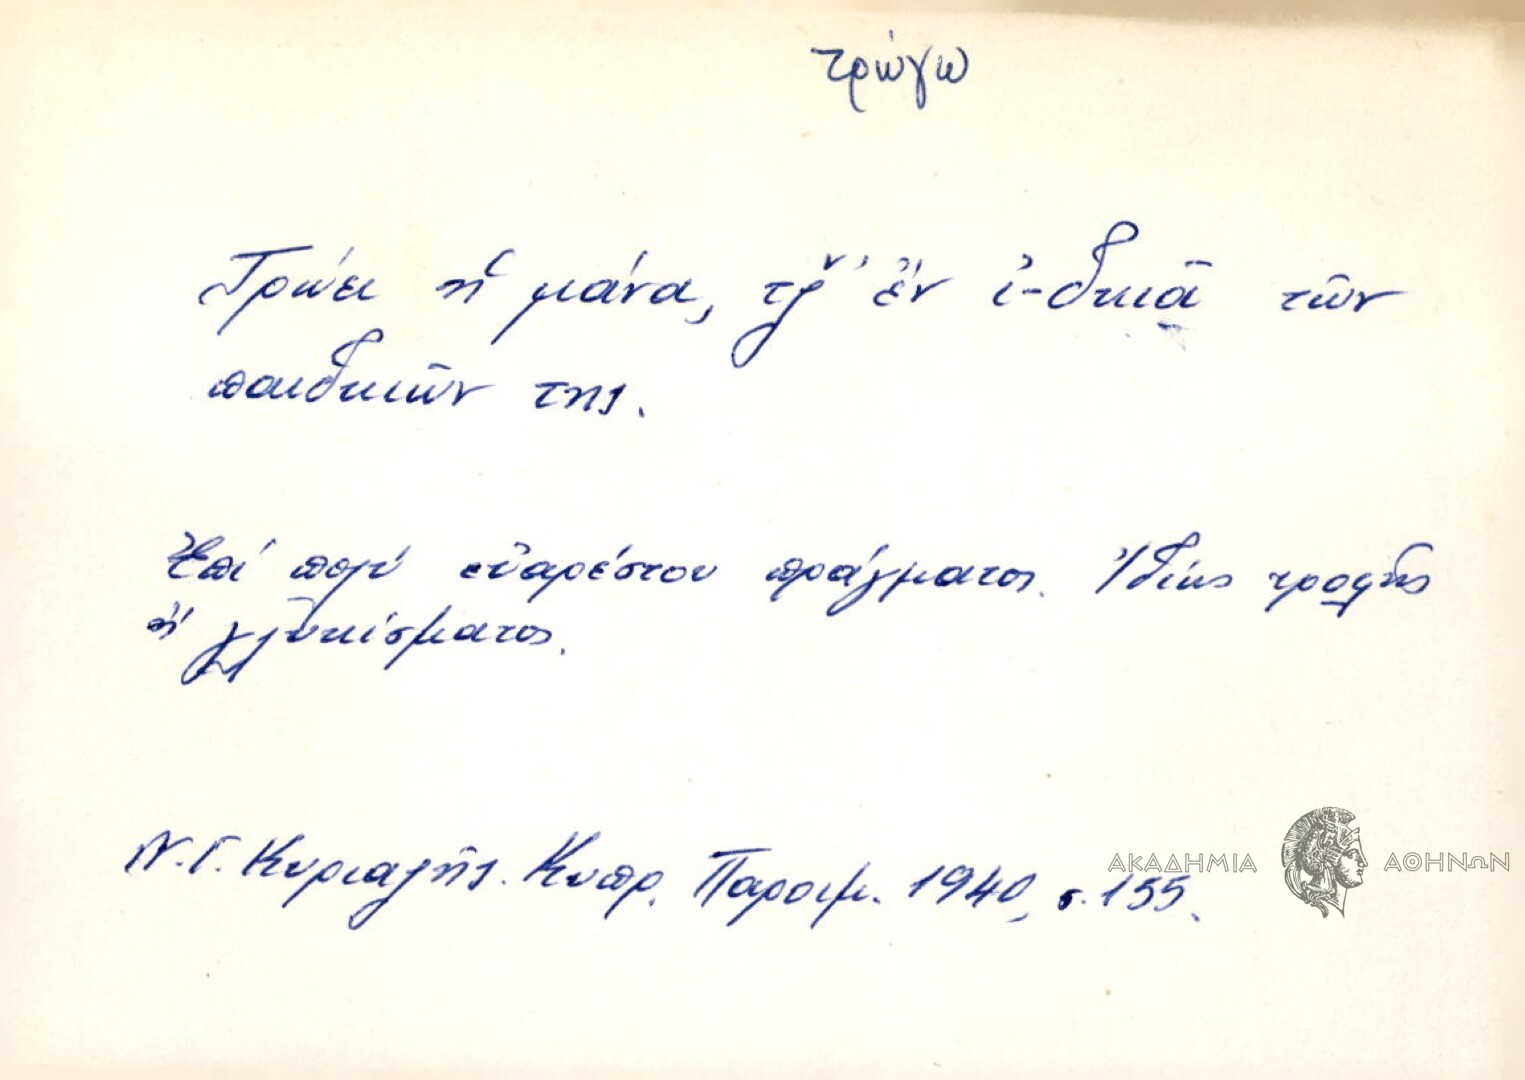 τρώγω
Τρώει ἡ μάνα, τζ̌' ἐν ἰ-δκιᾶ τῶν
παιδκιῶν της.
Ἐπί πολύ εὐαρέστου πράγματος. Ἰδίως τροφῆς
ἤ γλυκίσματος.
Ν. Γ. Κυριαζῆς. Κυπρ. Παροιμ. 1940, σ. 155.
ΑΚΑΔΗΜΙΑ ΑΘΗΝΩΝ